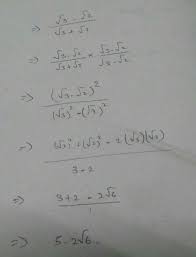 √3 - √2 / √3 + √2
⇒ √3 - √2 / √3 + √2 × √3 - √2 / √3 - √2
⇒ (√3 - √2)² / (√3)² - (√2)²
⇒ (√3)² + (√2)² - 2(√3)(√2) / 3 - 2
⇒ 3 + 2 - 2√6 / 1
⇒ 5 - 2√6